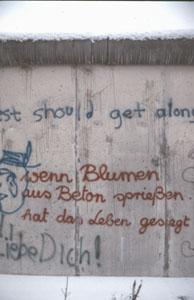 est should get along
wenn Blumen
aus Beton sprießen
hat das Leben gesiegt
Liebe Dich!